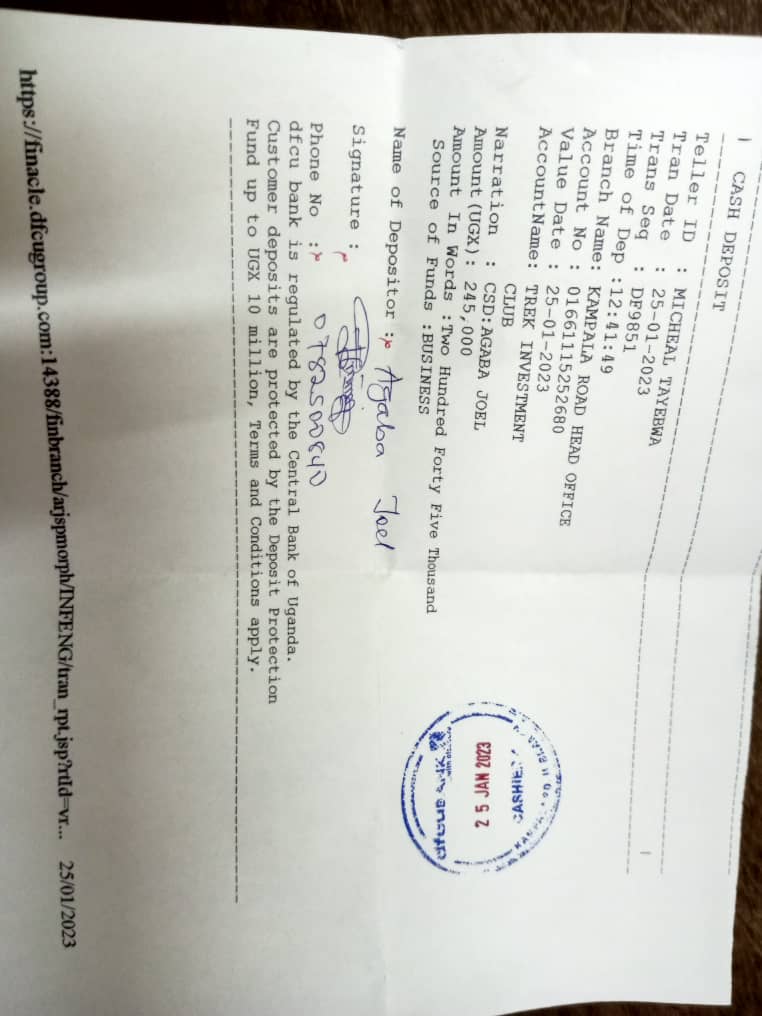 CASH DEPOSIT
Teller ID : MICHEAL TAYEBWA
Tran Date : 25-01-2023
Trans Seq : DF9851
Time of Dep :12:41:49
Branch Name: KAMPALA ROAD HEAD OFFICE
Account No : 01661115252680
Value Date : 25-01-2023
AccountName: TREK INVESTMENT
CLUB
Narration : CSD:AGABA JOEL
Amount(UGX): 245,000
Amount In Words :Two Hundred Forty Five Thousand
Source of Funds :BUSINESS
Name of Depositor : Agaba Joel
Signature :
Phone No : 0782500840
dfcu bank is regulated by the Central Bank of Uganda.
Customer deposits are protected by the Deposit Protection
Fund up to UGX 10 million, Terms and Conditions apply.
https://finacle.dfcugroup.com:14388/finbranch/arjspmorph/INFENG/tran_rpt.jsp?rtId=vr... 25/01/2023
CASHIER
25 JAN 2023